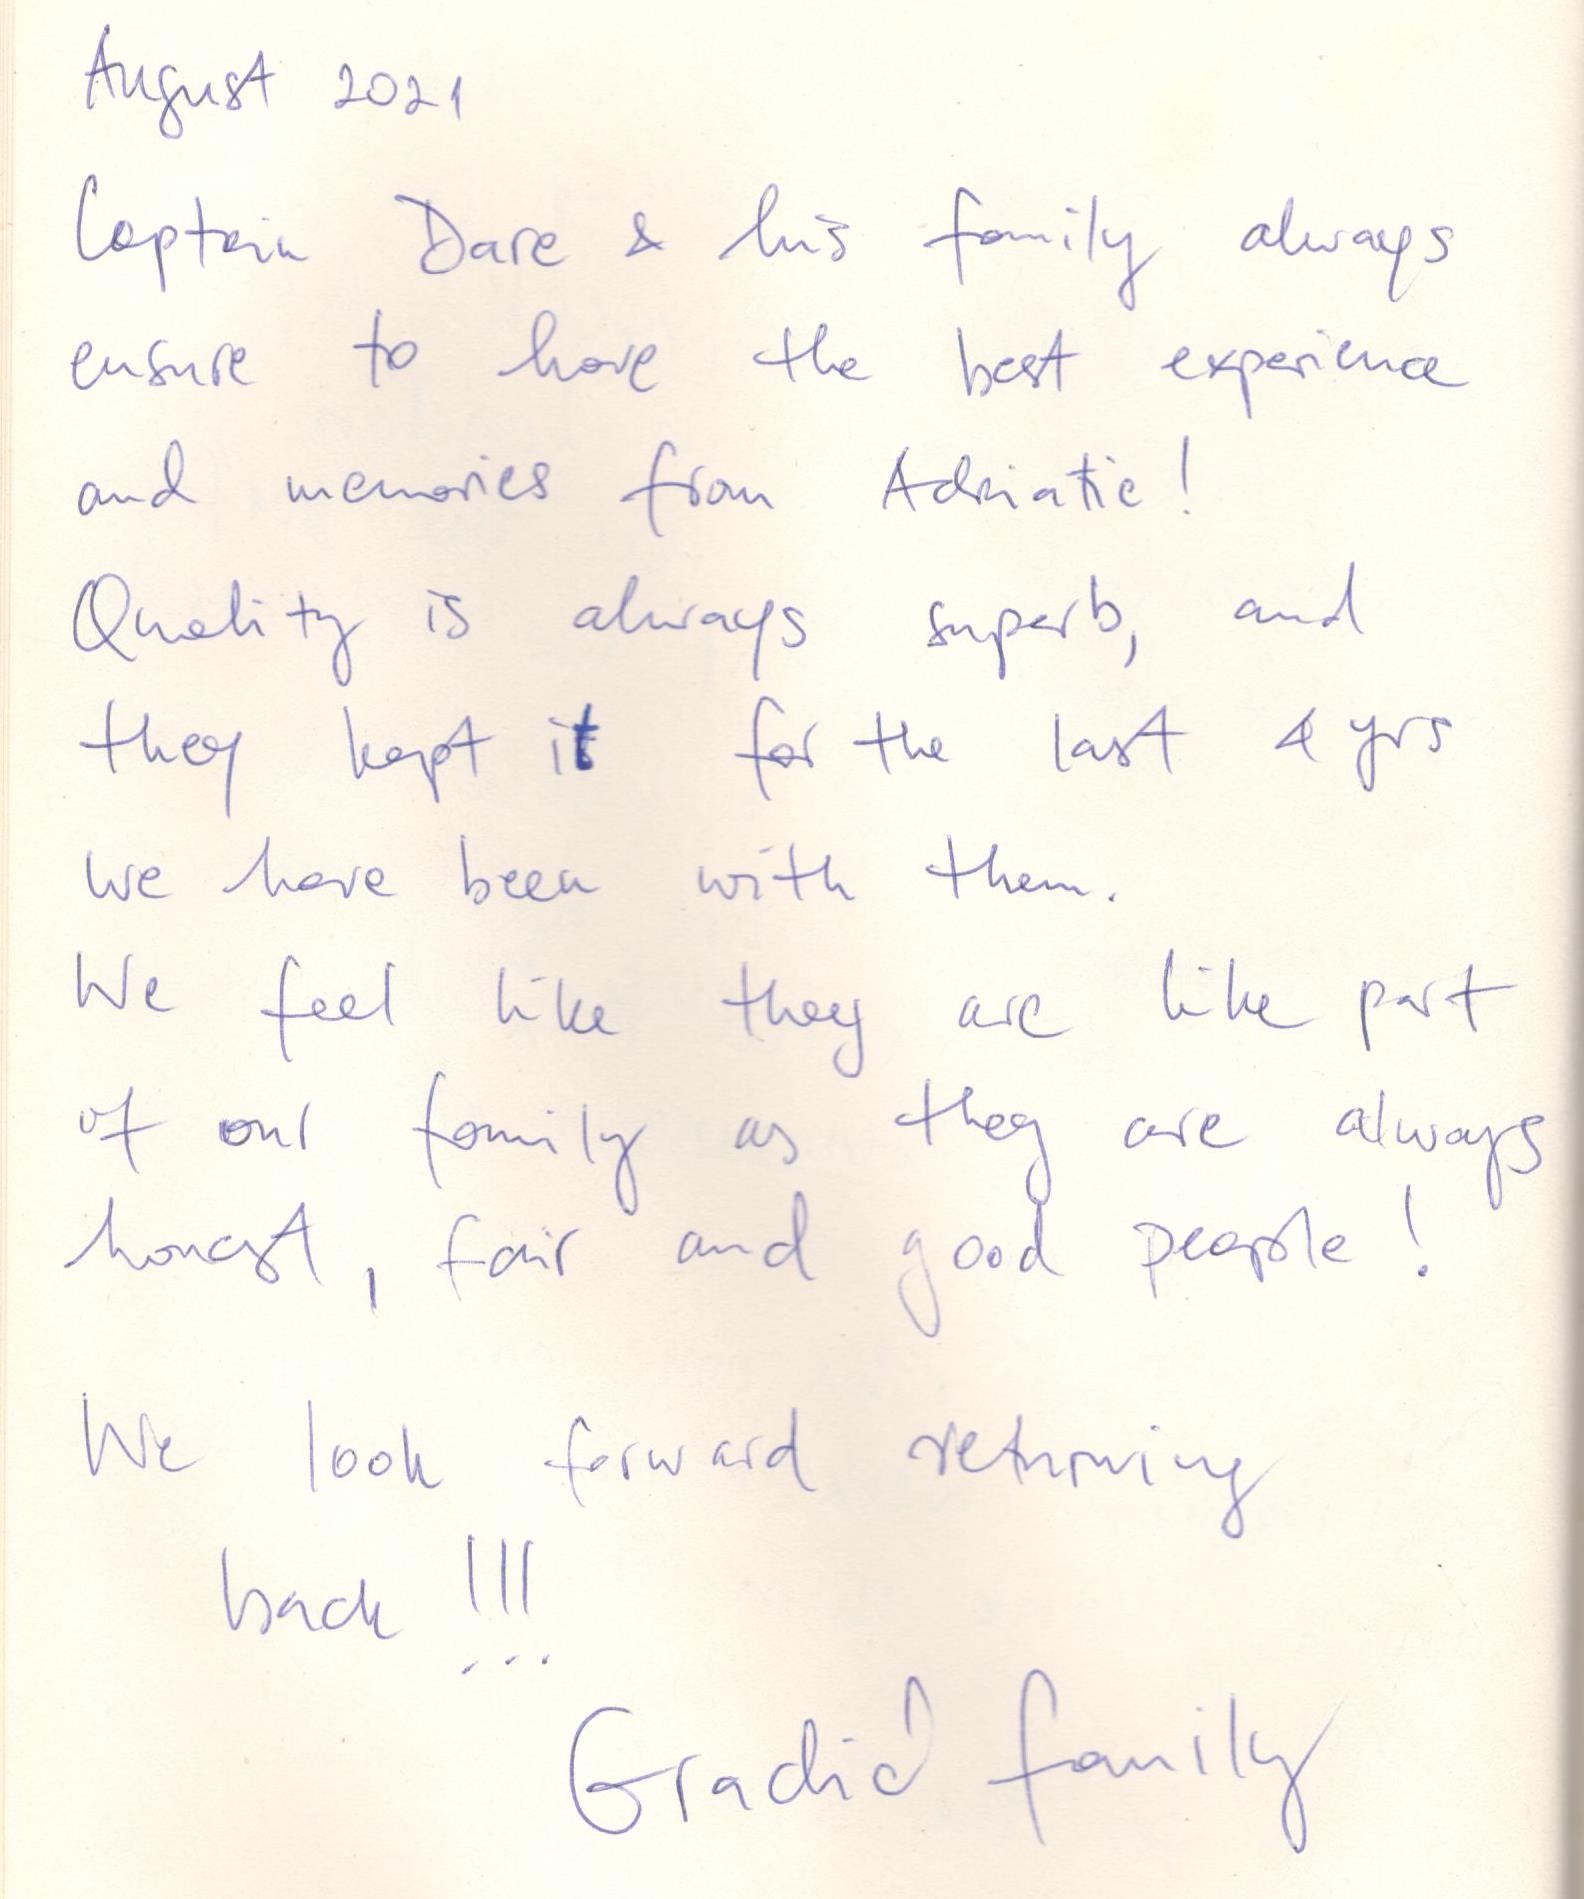 August 2021
Captain Dare & his family always
ensure to have the best experience
and memories from Adriatic!
Quality is always superb, and
they kept it for the last 4 yrs
we have been with them.
We feel like they are like part
of our family as they are always
honest, fair and good people!
We look forward returning
back!!!
Gradić family